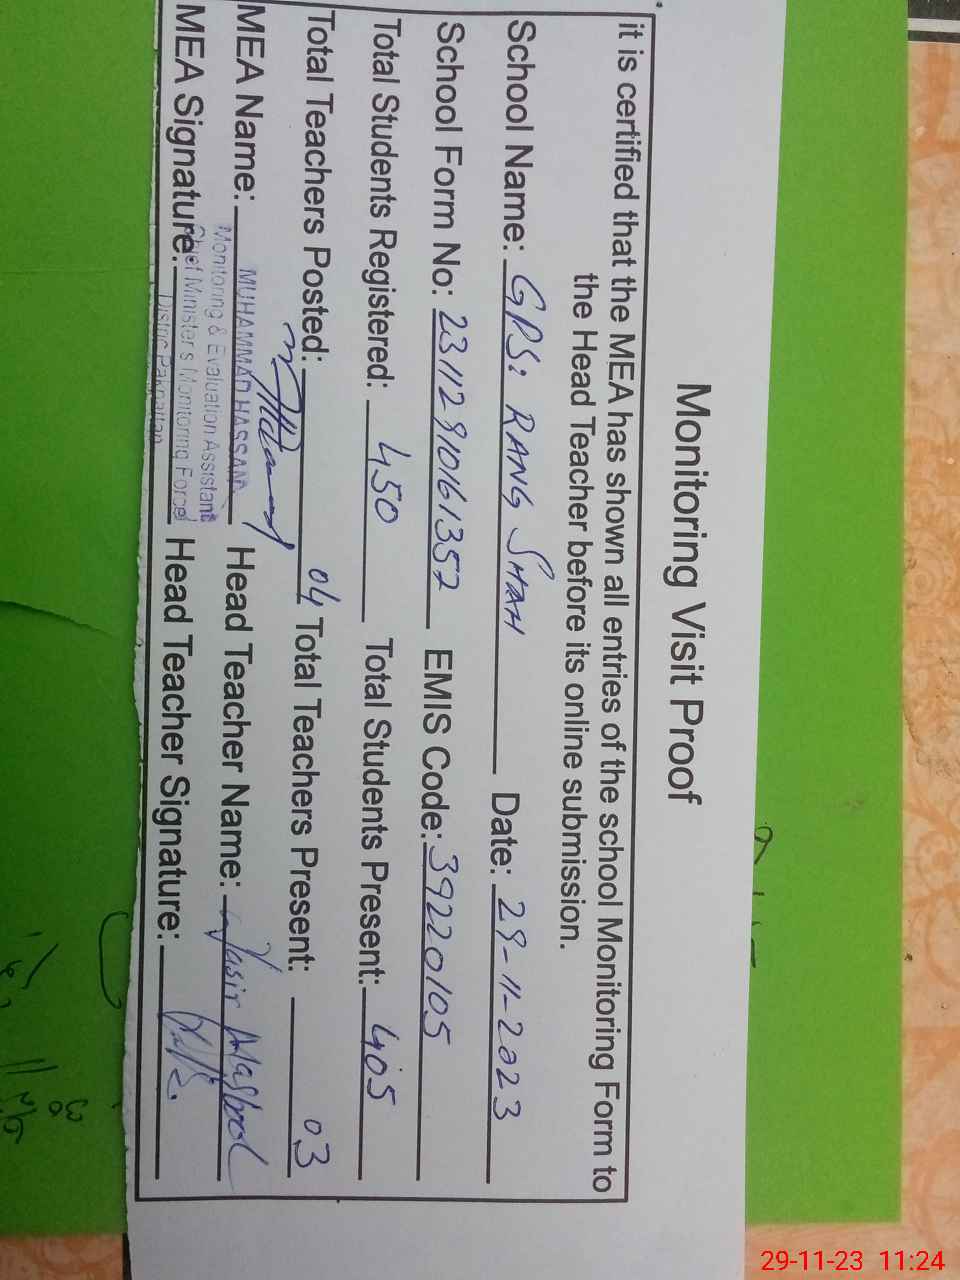 Monitoring Visit Proof
it is certified that the MEA has shown all entries of the school Monitoring Form to
the Head Teacher before its online submission.
School Name: GPS: RANG SHAH Date: 29-11-2023
School Form No: 231129101061357 EMIS Code: 39220105
Total Students Registered: 450 Total Students Present: 405
Total Teachers Posted: 04 Total Teachers Present: 03
MEA Name: MUHAMMAD HASSAN Head Teacher Name: Yasir Maqbool
Monitoring & Evaluation Assistant
MEA Signature: Chief Minister's Monitoring Force Head Teacher Signature:
District Pakpattan
29-11-23 11:24